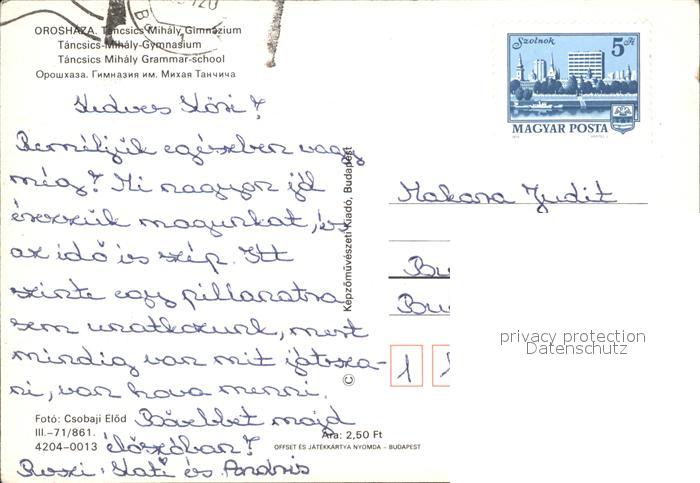 OROSHÁZA. Táncsics Mihály Gimnázium
Táncsics-Mihály-Gymnasium
Táncsics Mihály Grammar-school
Орошхаза. Гимназия им. Михая Танчича
Kedves
Reméljük egészben vagy
még? Mi nagyon jól
érezzük magunkat, és
az idő is szép. Itt
szinte egy pillanatra
sem unatkozunk, mert
mindig van mit játsza-
ni, van hova menni.
Bővebbet majd
élőszóban!
Puszi: Kati és András
Fotó: Csobaji Előd
III.–71/861.
4204–0013
Ára: 2,50 Ft
OFFSET ÉS JÁTÉKKÁRTYA NYOMDA – BUDAPEST
© Képzőművészeti Kiadó, Budapest
Szolnok
5 Ft
MAGYAR POSTA
Makara Judit
Bu
Bu
1
privacy protection
Datenschutz